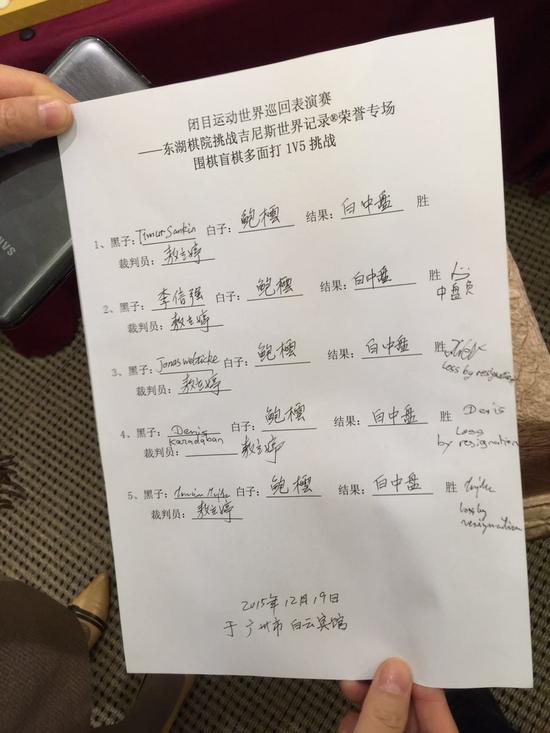 闭目运动世界巡回表演赛
——东湖棋院挑战吉尼斯世界记录®荣誉专场
围棋盲棋多面打 1V5 挑战
1、黑子：Timur Sankin 白子：鲍橒 结果：白中盘 胜
裁判员：敖立婷
2、黑子：李信强 白子：鲍橒 结果：白中盘 胜
中盘负
裁判员：敖立婷
3、黑子：Jonas Welticke 白子：鲍橒 结果：白中盘 胜
Loss by resignation
裁判员：敖立婷
4、黑子：Denis Karadaban 白子：鲍橒 结果：白中盘 胜 Denis
Loss
by resignation
裁判员：敖立婷
5、黑子： 白子：鲍橒 结果：白中盘 胜
loss by
resignation
裁判员：敖立婷
2015年12月19日
于广州市白云宾馆
SAMSUNG